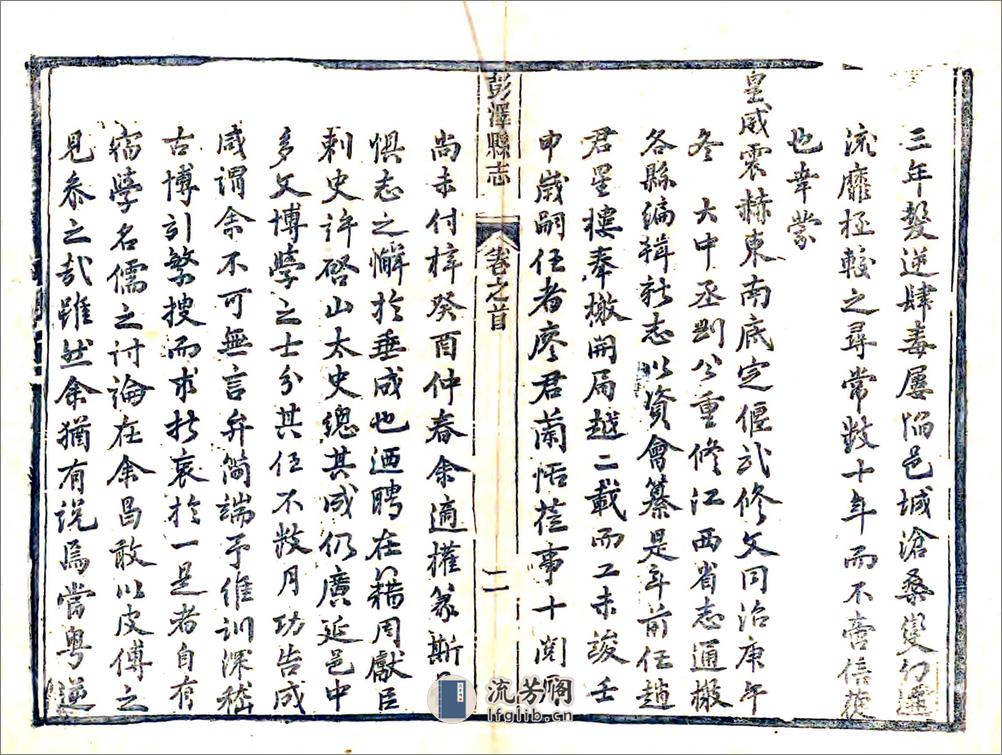 三年髮逆肆毒屢陷邑城滄桑變幻遷
流靡極較之尋常數十年而不啻倍蓰
也幸蒙
皇威震赫東南底定偃武修文同治庚午
冬　大中丞劉公重修江西省志通檄
各縣編輯新志以資會纂是年前任趙
君星樓奉檄開局越二載而工未竣壬
申歲嗣任者廖君蘭恬蒞事十閱
彭澤縣志
卷之首
二
尚未付梓癸酉仲春余適權篆斯
懼志之懈於垂成也迺聘在籍周獻臣
刺史許啓山太史總其成仍廣延邑中
多文博學之士分其任不數月功告成
咸謂余不可無言弁简端予維訓深嵇
古博引繁搜而求折衷於一是者自有
宿學名儒之討論在余曷敢以皮傅之
見參之哉雖然余猶有說焉當粤逆
流芳阁
lfglib.cn